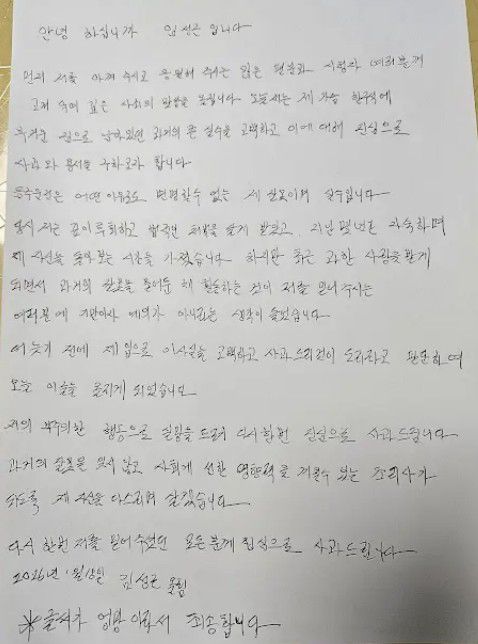 안녕 하십니까 임성근 입니다
먼저 저를 아껴 주시고 응원해 주시는 많은 팬분과 시청자 여러분께
고개 숙여 깊은 사죄의 말씀을 올립니다 오늘 저는 제 가슴 한구석에
무거운 짐으로 남아있던 과거의 큰 실수를 고백하고 이에 대해 진심으로
사과와 용서를 구하고자 합니다
음주운전은 어떤 이유로도 변명할수 없는 제 잘못이며 실수입니다
당시 저는 깊이 후회하고 법적인 처벌을 달게 받았고, 지난 몇년은 자숙하며
제 자신을 돌아보는 시간을 가졌습니다 하지만 최근 과한 사랑을 받게
되면서 과거의 잘못을 묻어둔 채 활동하는 것이 저를 믿어주시는
여러분에 기만이자 예의가 아니라는 생각이 들었습니다
더 늦기 전에 제 입으로 이사실을 고백하고 사과드리는것이 도리라고 판단하여
오늘 이글을 올리게 되었습니다
저의 부주의한 행동으로 실망을 드려 다시한번 진심으로 사과드립니다
과거의 잘못을 잊지 않고 사회에 선한 영향력을 끼칠수 있는 조리사가
되도록 제 자신을 다스리며 살겠습니다
다시 한번 저를 믿어주셨던 모든분께 진심으로 사과드립니다
2026년 1월 임성근 올림
※글씨가 엉망 이라서 죄송합니다